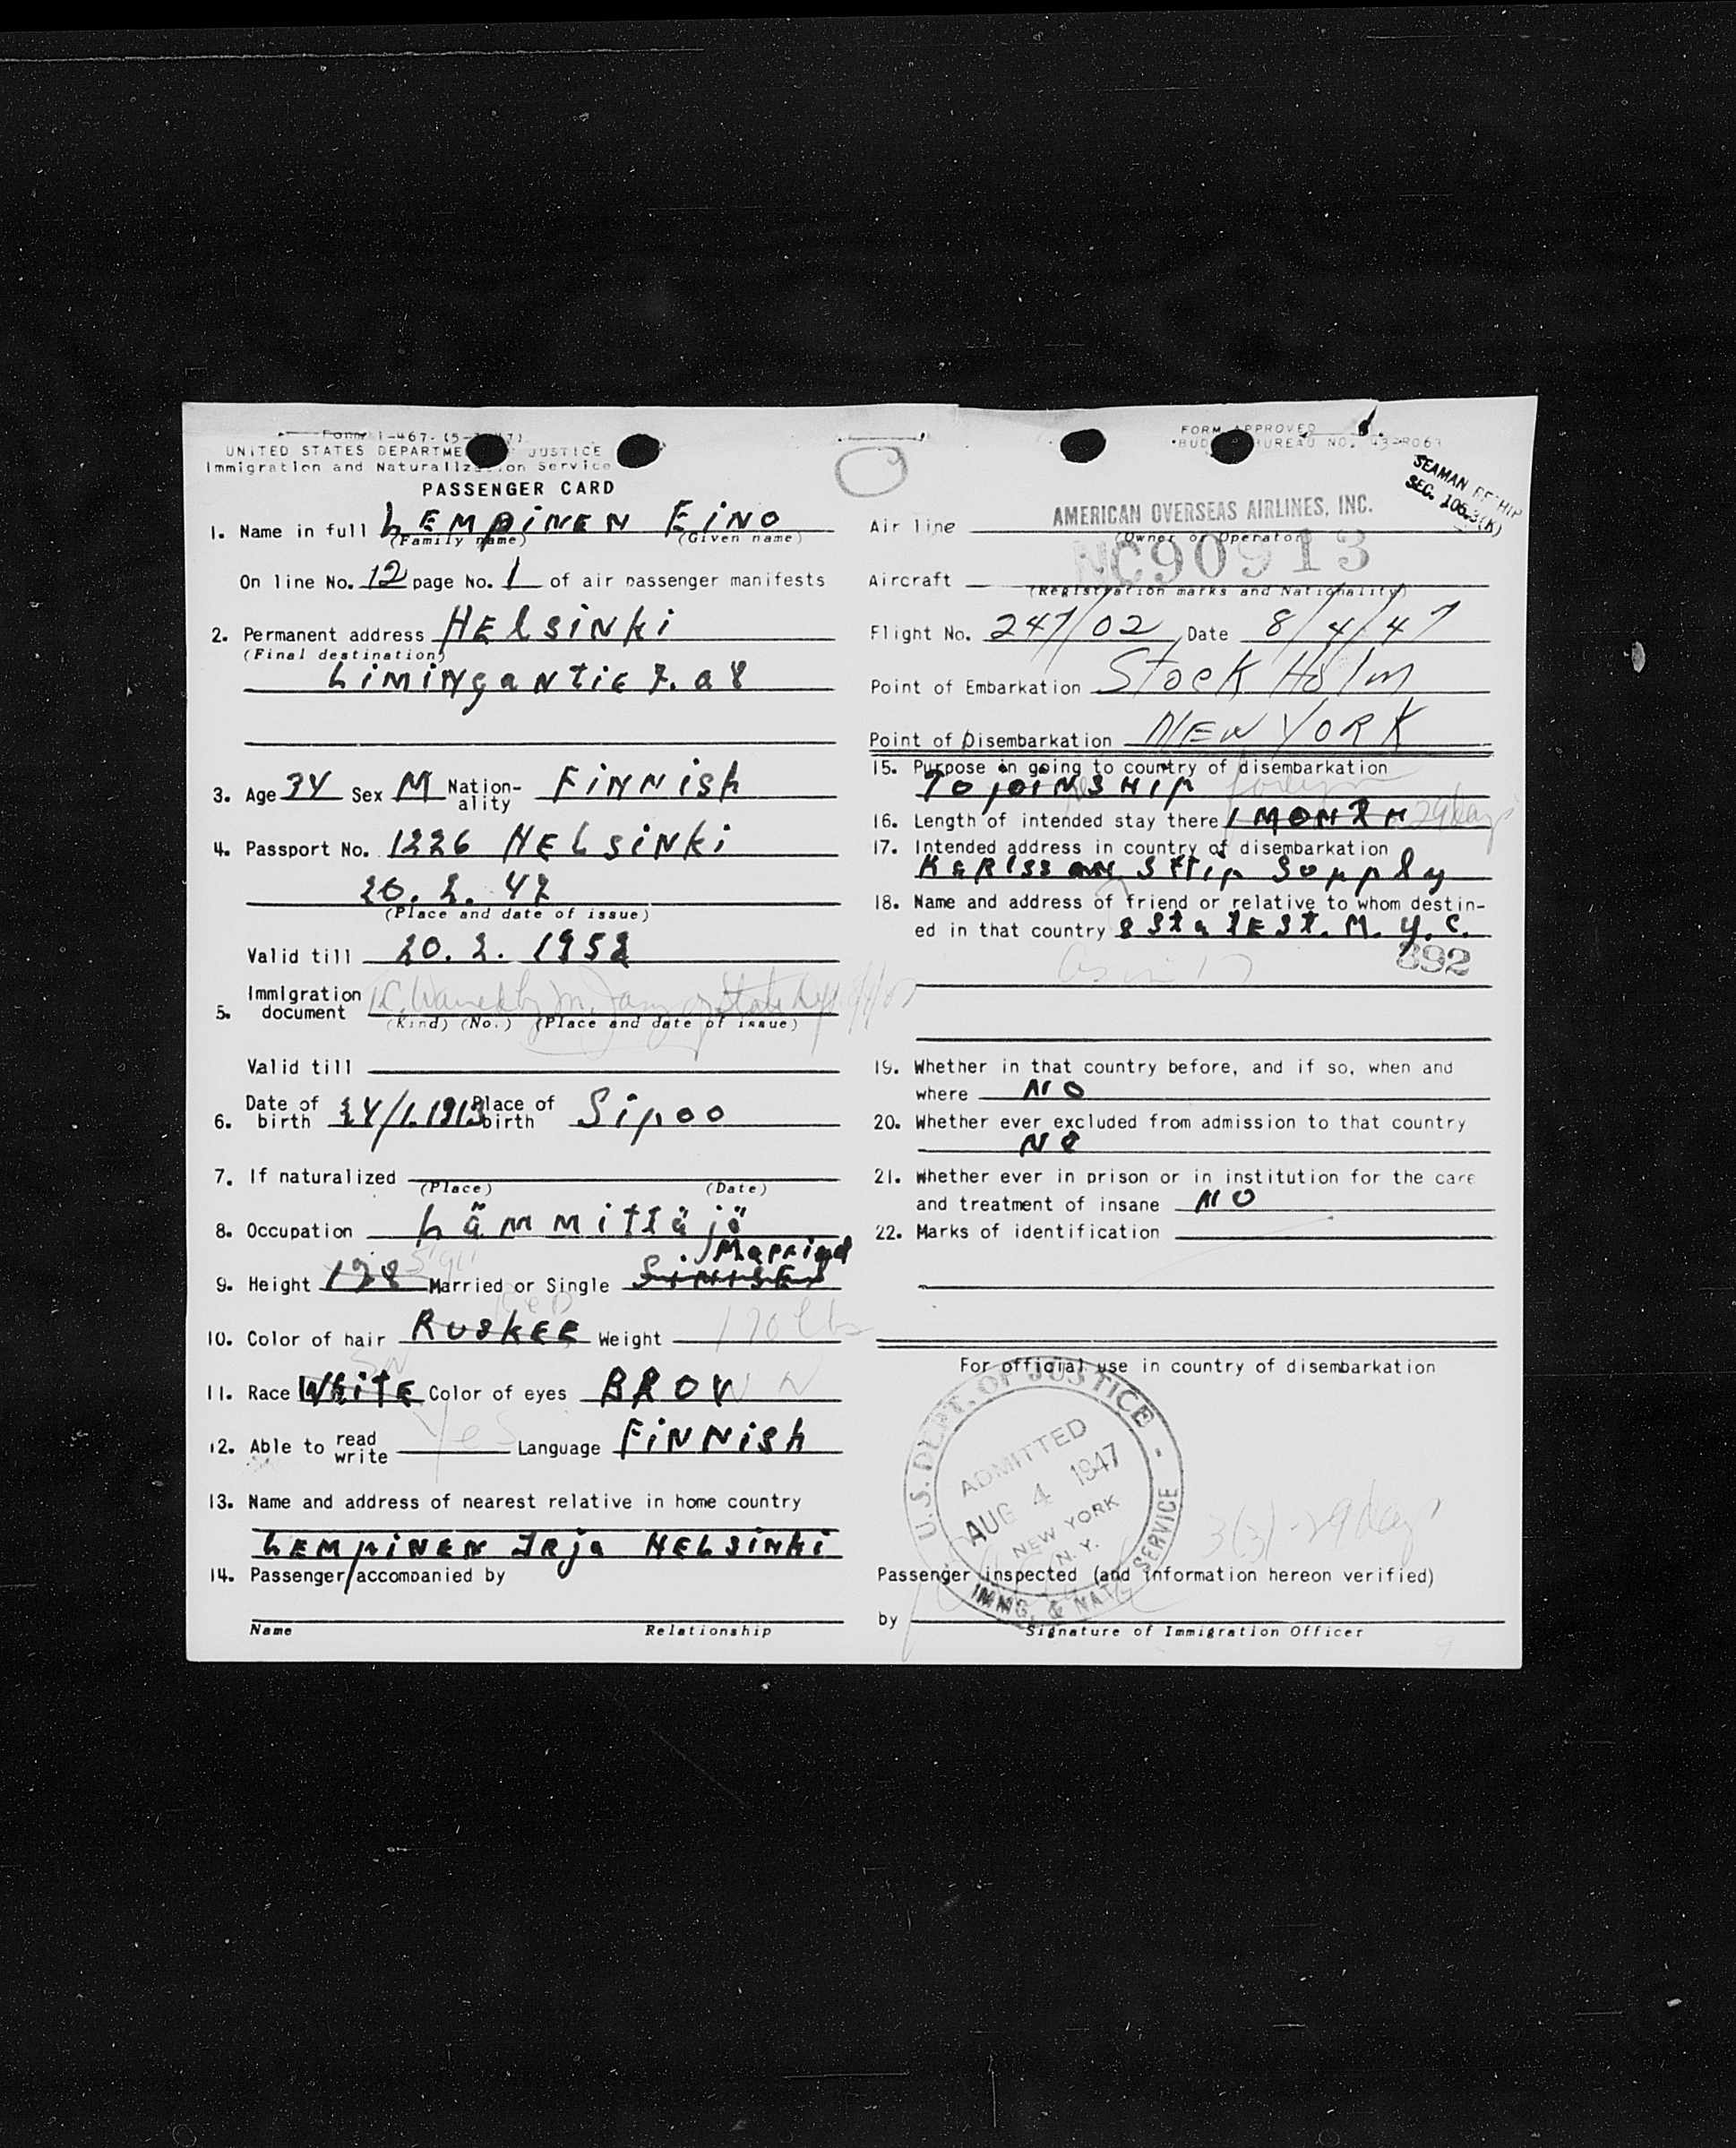 Form I-467
UNITED STATES DEPARTMENT JUSTICE
Immigration and Naturalization Service
PASSENGER CARD
1. Name in full LEMPINEN EINO
(Family name) (Given name)
On line No. 12 page No. 1 of air passenger manifests
2. Permanent address HELSINKI
(Final destination)
LIMINGANTIE
3. Age 34 Sex M Nationality FINNISH
4. Passport No. HELSINKI
(Place and date of issue)
Valid till
5. Immigration document
(Kind) (No.) (Place and date of issue)
Valid till
6. Date of birth 24/1.1913 Place of birth Sipoo
7. If naturalized
(Place) (Date)
8. Occupation Lämmittäjä
Married
9. Height Married or Single
RED
10. Color of hair RUSKEE Weight
11. Race WHITE Color of eyes BROWN
12. Able to read write Yes Language FINNISH
13. Name and address of nearest relative in home country
LEMPINEN IRJA HELSINKI
14. Passenger accompanied by
Name Relationship
FORM APPROVED
SEAMAN
SEC. 106.3(K)
Air line AMERICAN OVERSEAS AIRLINES, INC.
(Owner or Operator)
Aircraft NC90913
(Registration marks and Nationality)
Flight No. 247/02 Date 8/4/47
Point of Embarkation Stockholm
Point of Disembarkation NEW YORK
15. Purpose in going to country of disembarkation
TO JOIN SHIP foreign
16. Length of intended stay there 1 MONTH 29 days
17. Intended address in country of disembarkation
SHIP SUPPLY
18. Name and address of friend or relative to whom destin-
ed in that country 8 STATE ST. N.Y.C.
892
as in 17
19. Whether in that country before, and if so, when and
where NO
20. Whether ever excluded from admission to that country
NO
21. Whether ever in prison or in institution for the care
and treatment of insane NO
22. Marks of identification
For official use in country of disembarkation
U.S. DEPT. OF JUSTICE - IMMG. & NATZ. SERVICE
ADMITTED
AUG 4 1947
NEW YORK
N.Y.
3(3) - 29 days
Passenger inspected (and information hereon verified)
by
Signature of Immigration Officer